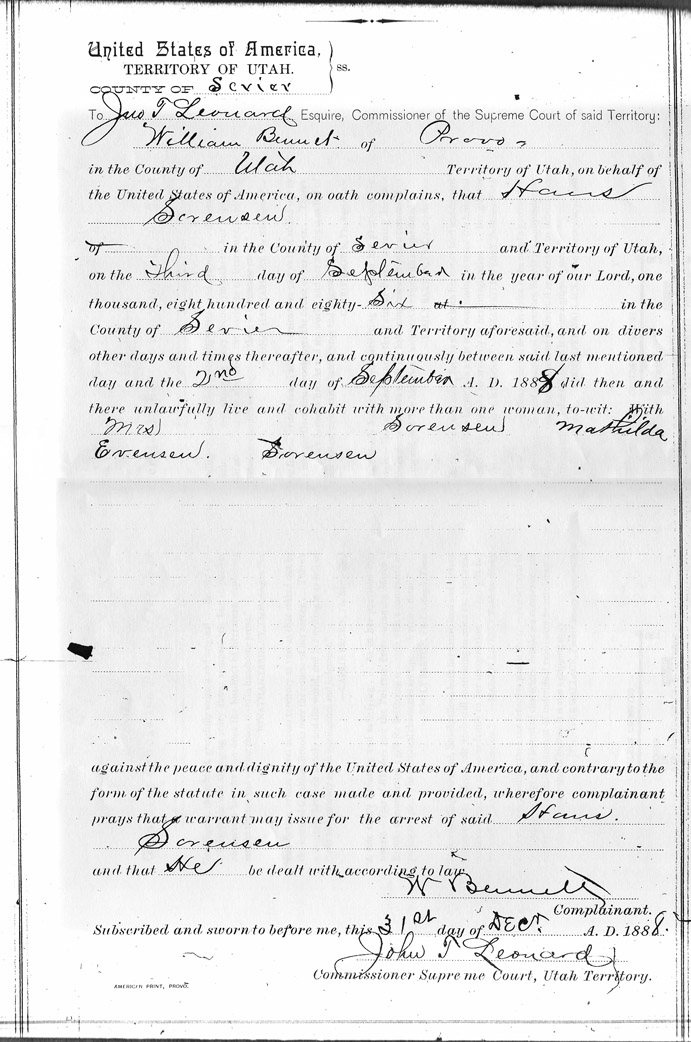 United States of America,
TERRITORY OF UTAH.
COUNTY OF Sevier
ss.
To Jno T Leonard Esquire, Commissioner of the Supreme Court of said Territory:
William Bennet of Provo
in the County of Utah Territory of Utah, on behalf of
the United States of America, on oath complains, that Hans
Sorensen
of in the County of Sevier and Territory of Utah,
on the Third day of September in the year of our Lord, one
thousand, eight hundred and eighty-Six at in the
County of Sevier and Territory aforesaid, and on divers
other days and times thereafter, and continuously between said last mentioned
day and the 2nd day of September A. D. 1888 did then and
there unlawfully live and cohabit with more than one woman, to-wit: With
Mrs Sorensen Mathilda
Evensen. Sorensen
against the peace and dignity of the United States of America, and contrary to the
form of the statute in such case made and provided, wherefore complainant
prays that a warrant may issue for the arrest of said Hans.
Sorensen
and that He be dealt with according to law
W Bennett
Complainant.
Subscribed and sworn to before me, this 31st day of Dec. A. D. 1888.
John T Leonard
Commissioner Supreme Court, Utah Territory.
AMERICAN PRINT, PROVO.